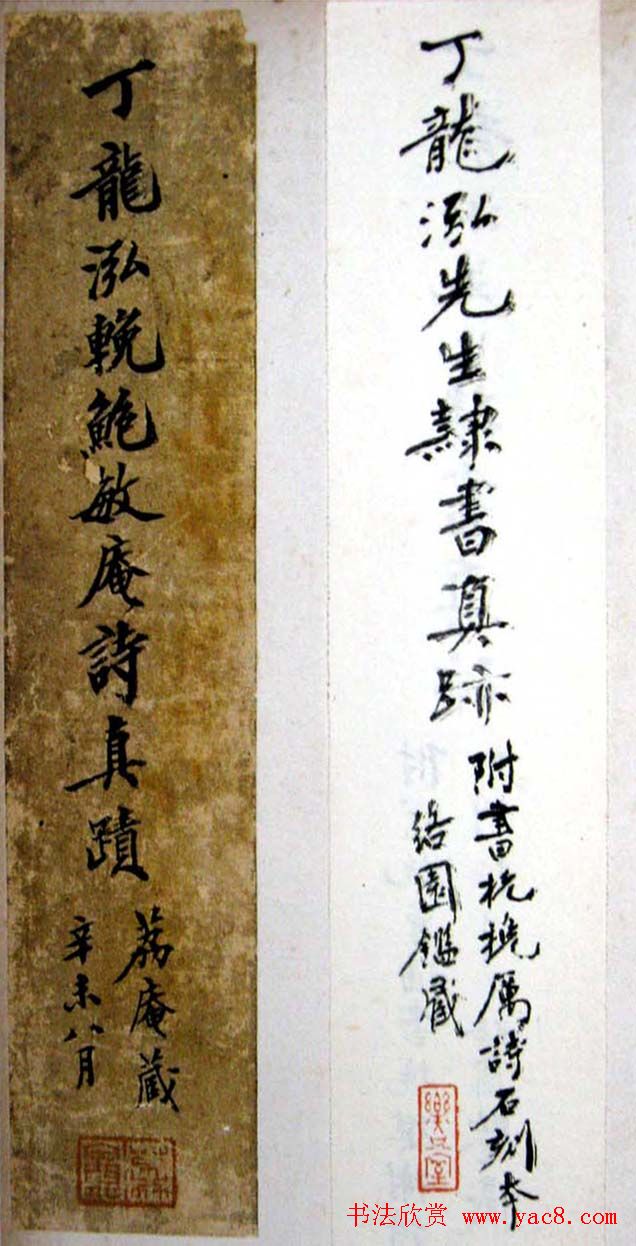 丁龍泓先生隸書真跡
附書杭挽厲詩石刻本
絡園鑑藏
樂只室
丁龍泓輓鮑敏庵詩真蹟
荔庵藏
辛未八月
书法欣赏 www.yac8.com